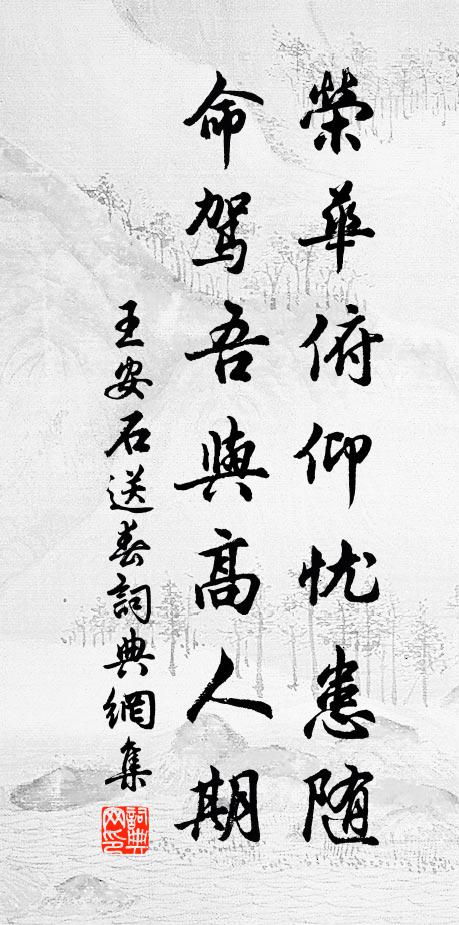 榮華俯仰忧患随
命駕吾與高人期
王安石送春詞典網集
詞典網印